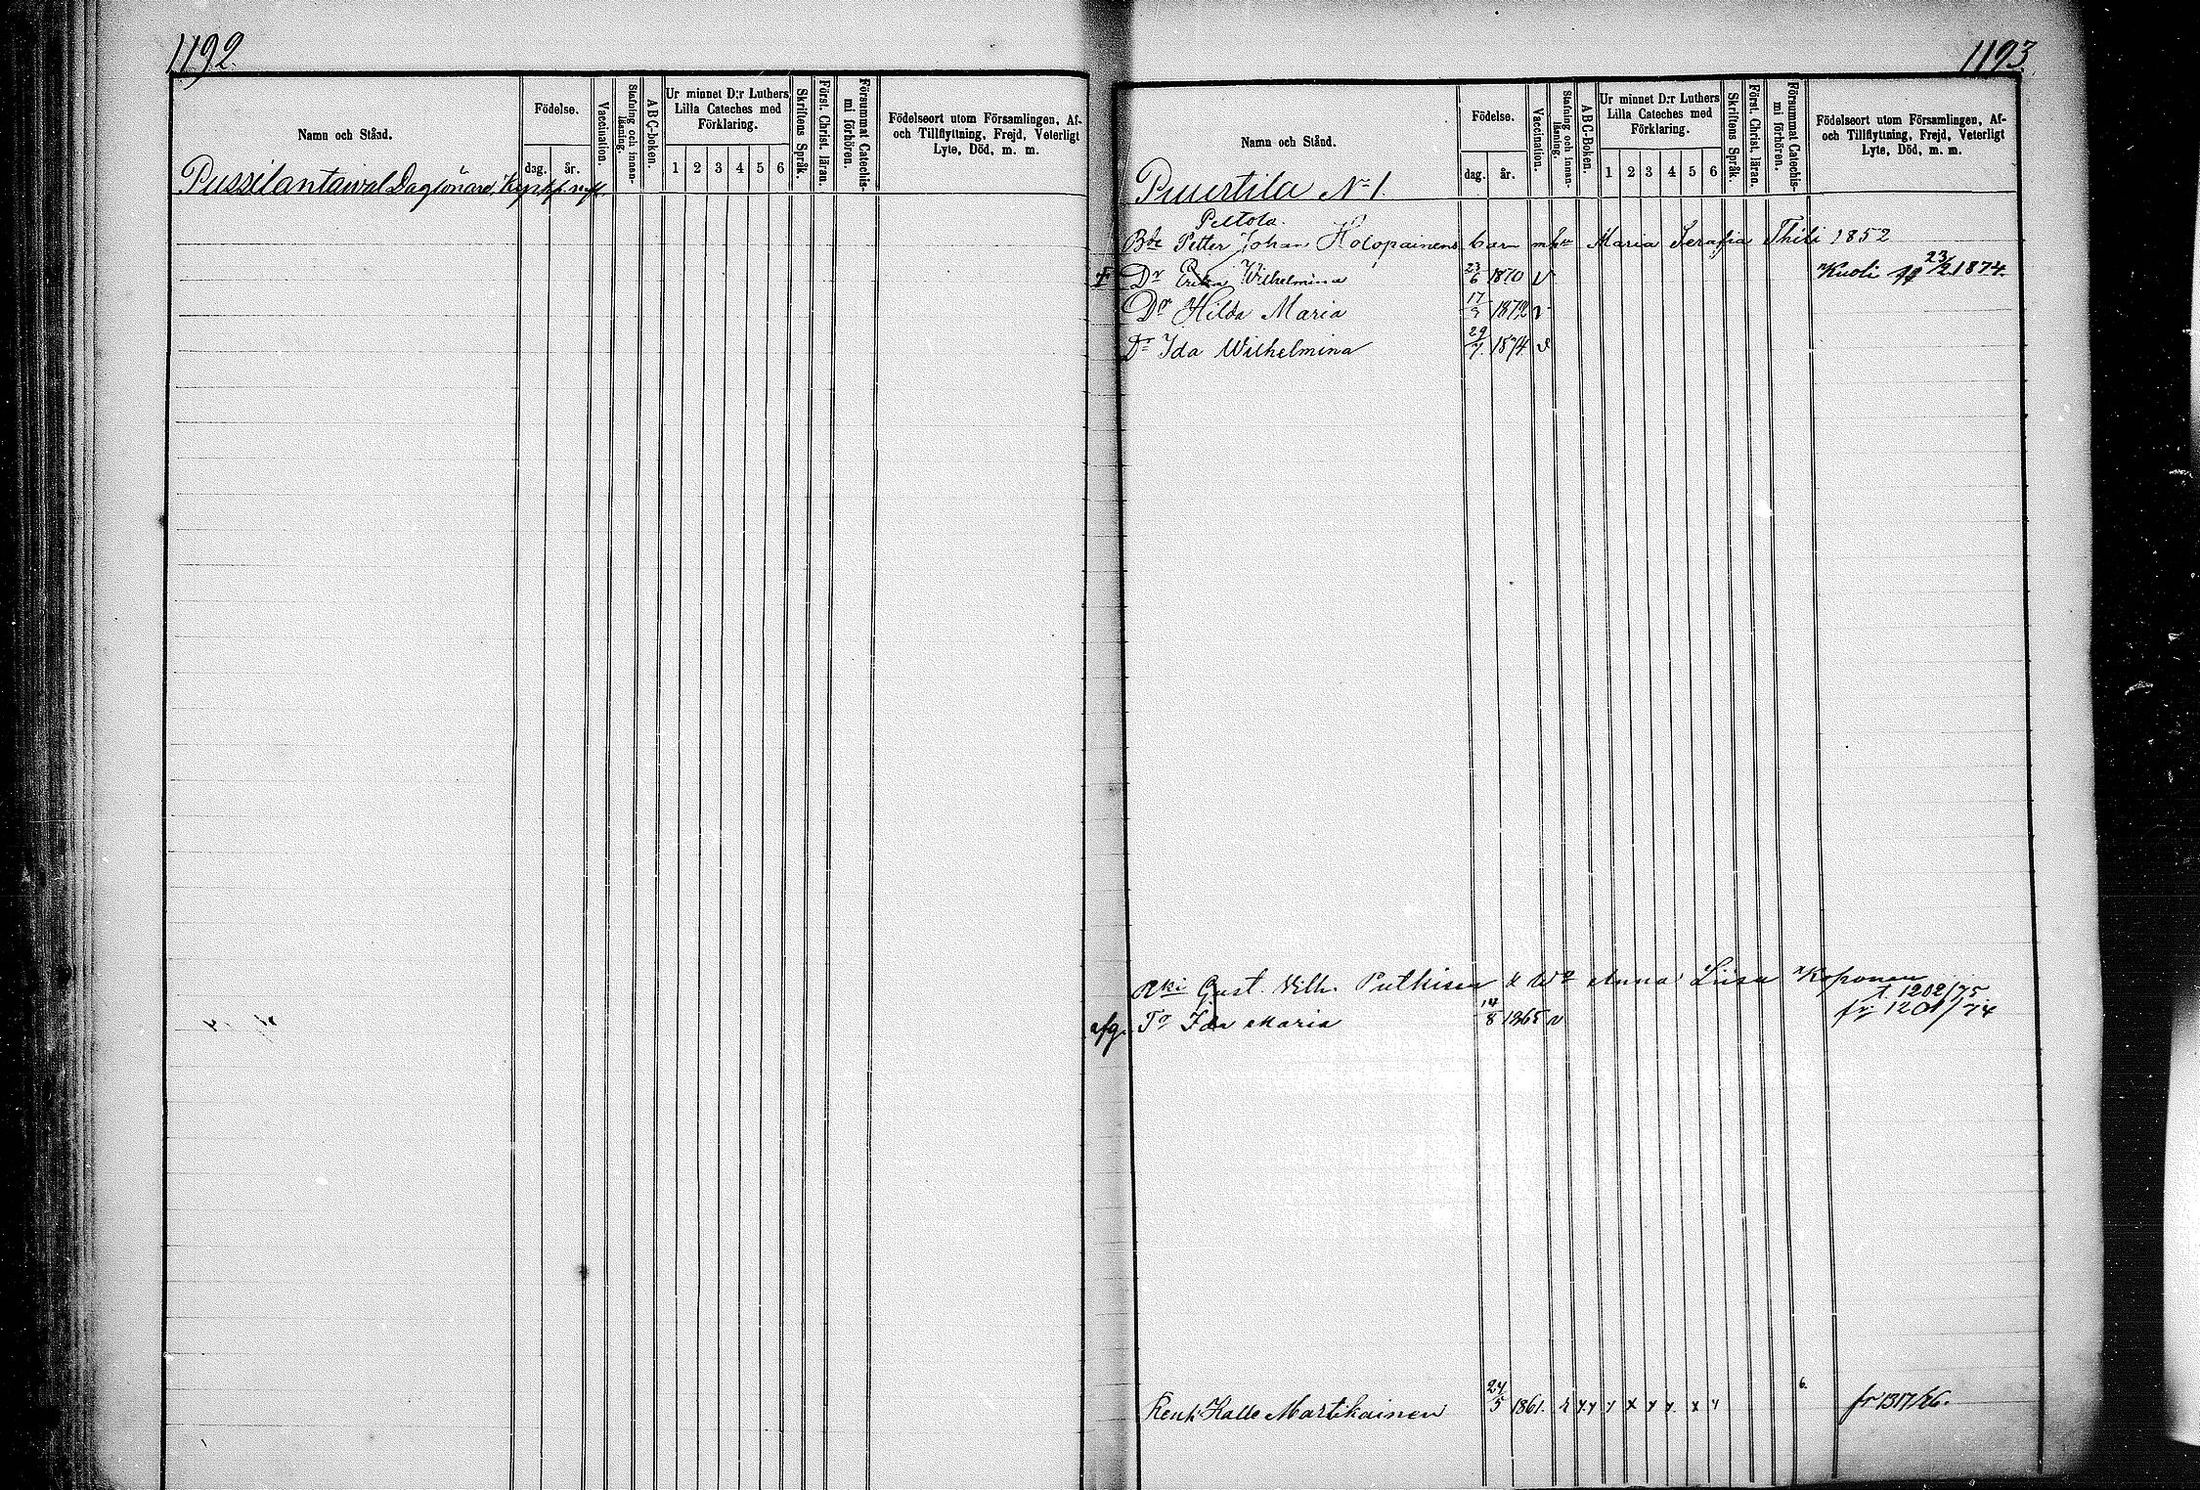 1192.
Namn och Stånd.
Födelse.
dag.
år.
Vaccination.
Stafning och innan-
läsning.
ABC-boken.
Ur minnet D:r Luthers
Lilla Cateches med
Förklaring.
1 2 3 4 5 6
Skriftens Språk.
Först. Christ. läran.
Försummat Catechis-
mi förhören.
Födelseort utom Församlingen, Af-
och Tillflyttning, Frejd, Veterligt
Lyte, Död, m. m.
1193.
Namn och Stånd.
Födelse.
dag.
år.
Vaccination.
Stafning och innan-
läsning.
ABC-Boken.
Ur minnet D:r Luthers
Lilla Cateches med
Förklaring.
1 2 3 4 5 6
Skriftens Språk.
Först. Christ. läran.
Försummat Catechis-
mi förhören.
Födelseort utom Församlingen, Af-
och Tillflyttning, Frejd, Veterligt
Lyte, Död, m. m.
Puustila No 1
Peltola.
Petter Johan Holopainens barn Maria Serafia 1852
Dr Wilhelmina 23/6 1870 v Kuoli 23/2 1874.
Dr Hilda Maria 1872 v
Dr Ida Wilhelmina 29/7. 1874 v
Gust. Vilh. Putkisen Anna Liisa Koponen
t. 1202/75
afg. Tr Ida Maria 14/8 1865 v fr 1201/74
Kalle Martikainen 24/5 1861. 6. fr 1317/86.